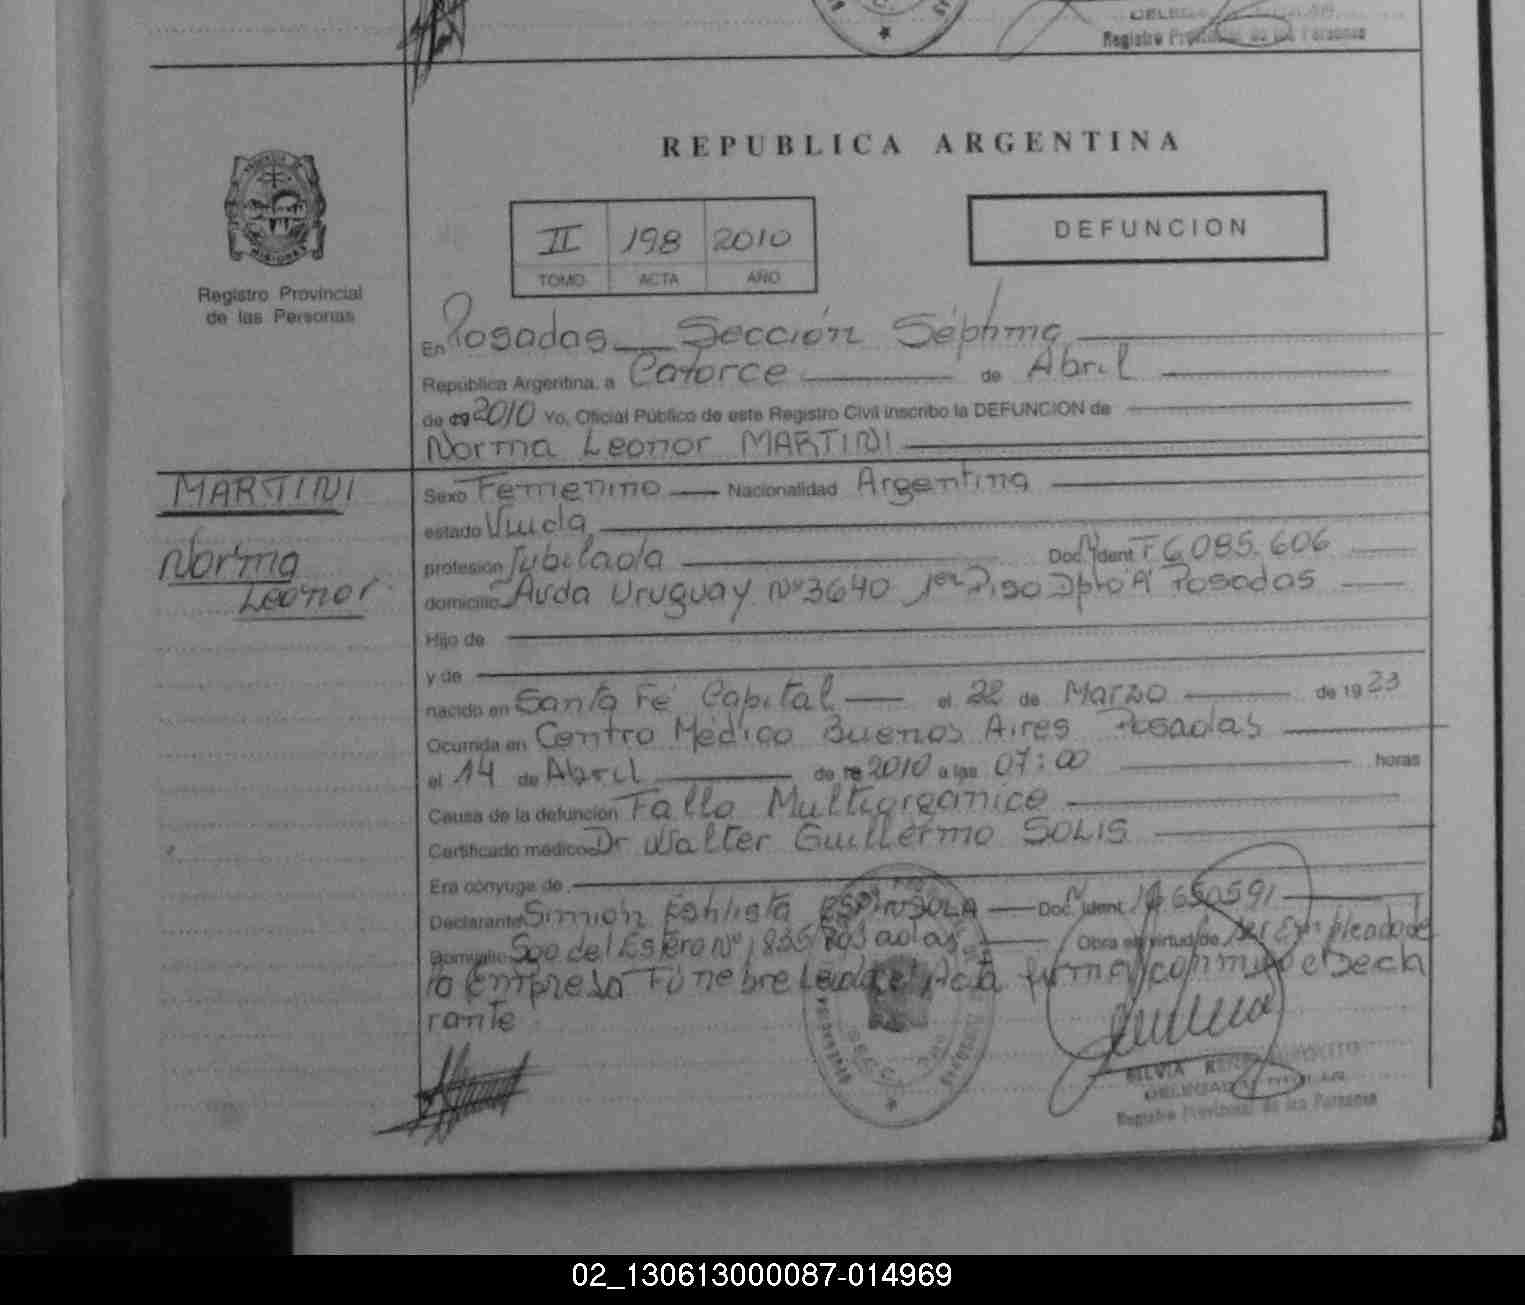 Registro Provincial de las Personas
REPUBLICA ARGENTINA
II 198 2010
TOMO ACTA AÑO
DEFUNCION
Registro Provincial
de las Personas
En Posadas Sección Séptima
República Argentina, a Catorce de Abril
de 2010 Yo, Oficial Público de este Registro Civil inscribo la DEFUNCION de
Norma Leonor MARTINI
MARTINI
Norma
Leonor
Sexo Femenino Nacionalidad Argentina
estado Viuda
profesión Jubilada Doc. Ident F 6.085.606
domicilio Avda Uruguay Nº 3640 1er Piso Dpto A Posadas
Hijo de
y de
nacido en Santa Fé Capital el 22 de Marzo de 19 23
Ocurrida en Centro Médico Buenos Aires Posadas
el 14 de Abril de 2010 a las 07:00 horas
Causa de la defunción Falla Multiorgánica
Certificado médico Dr Walter Guillermo SOLIS
Era cónyuge de
Declarante ESPINSOLA Doc. Ident.
Domicilio Sgo del Estero Nº 1835 Posadas Obra en virtud de ser Empleado de
la Empresa Fúnebre Leida el Acta firma conmigo el Decla
rante
SILVIA
Registro Provincial de las Personas
02_130613000087-014969